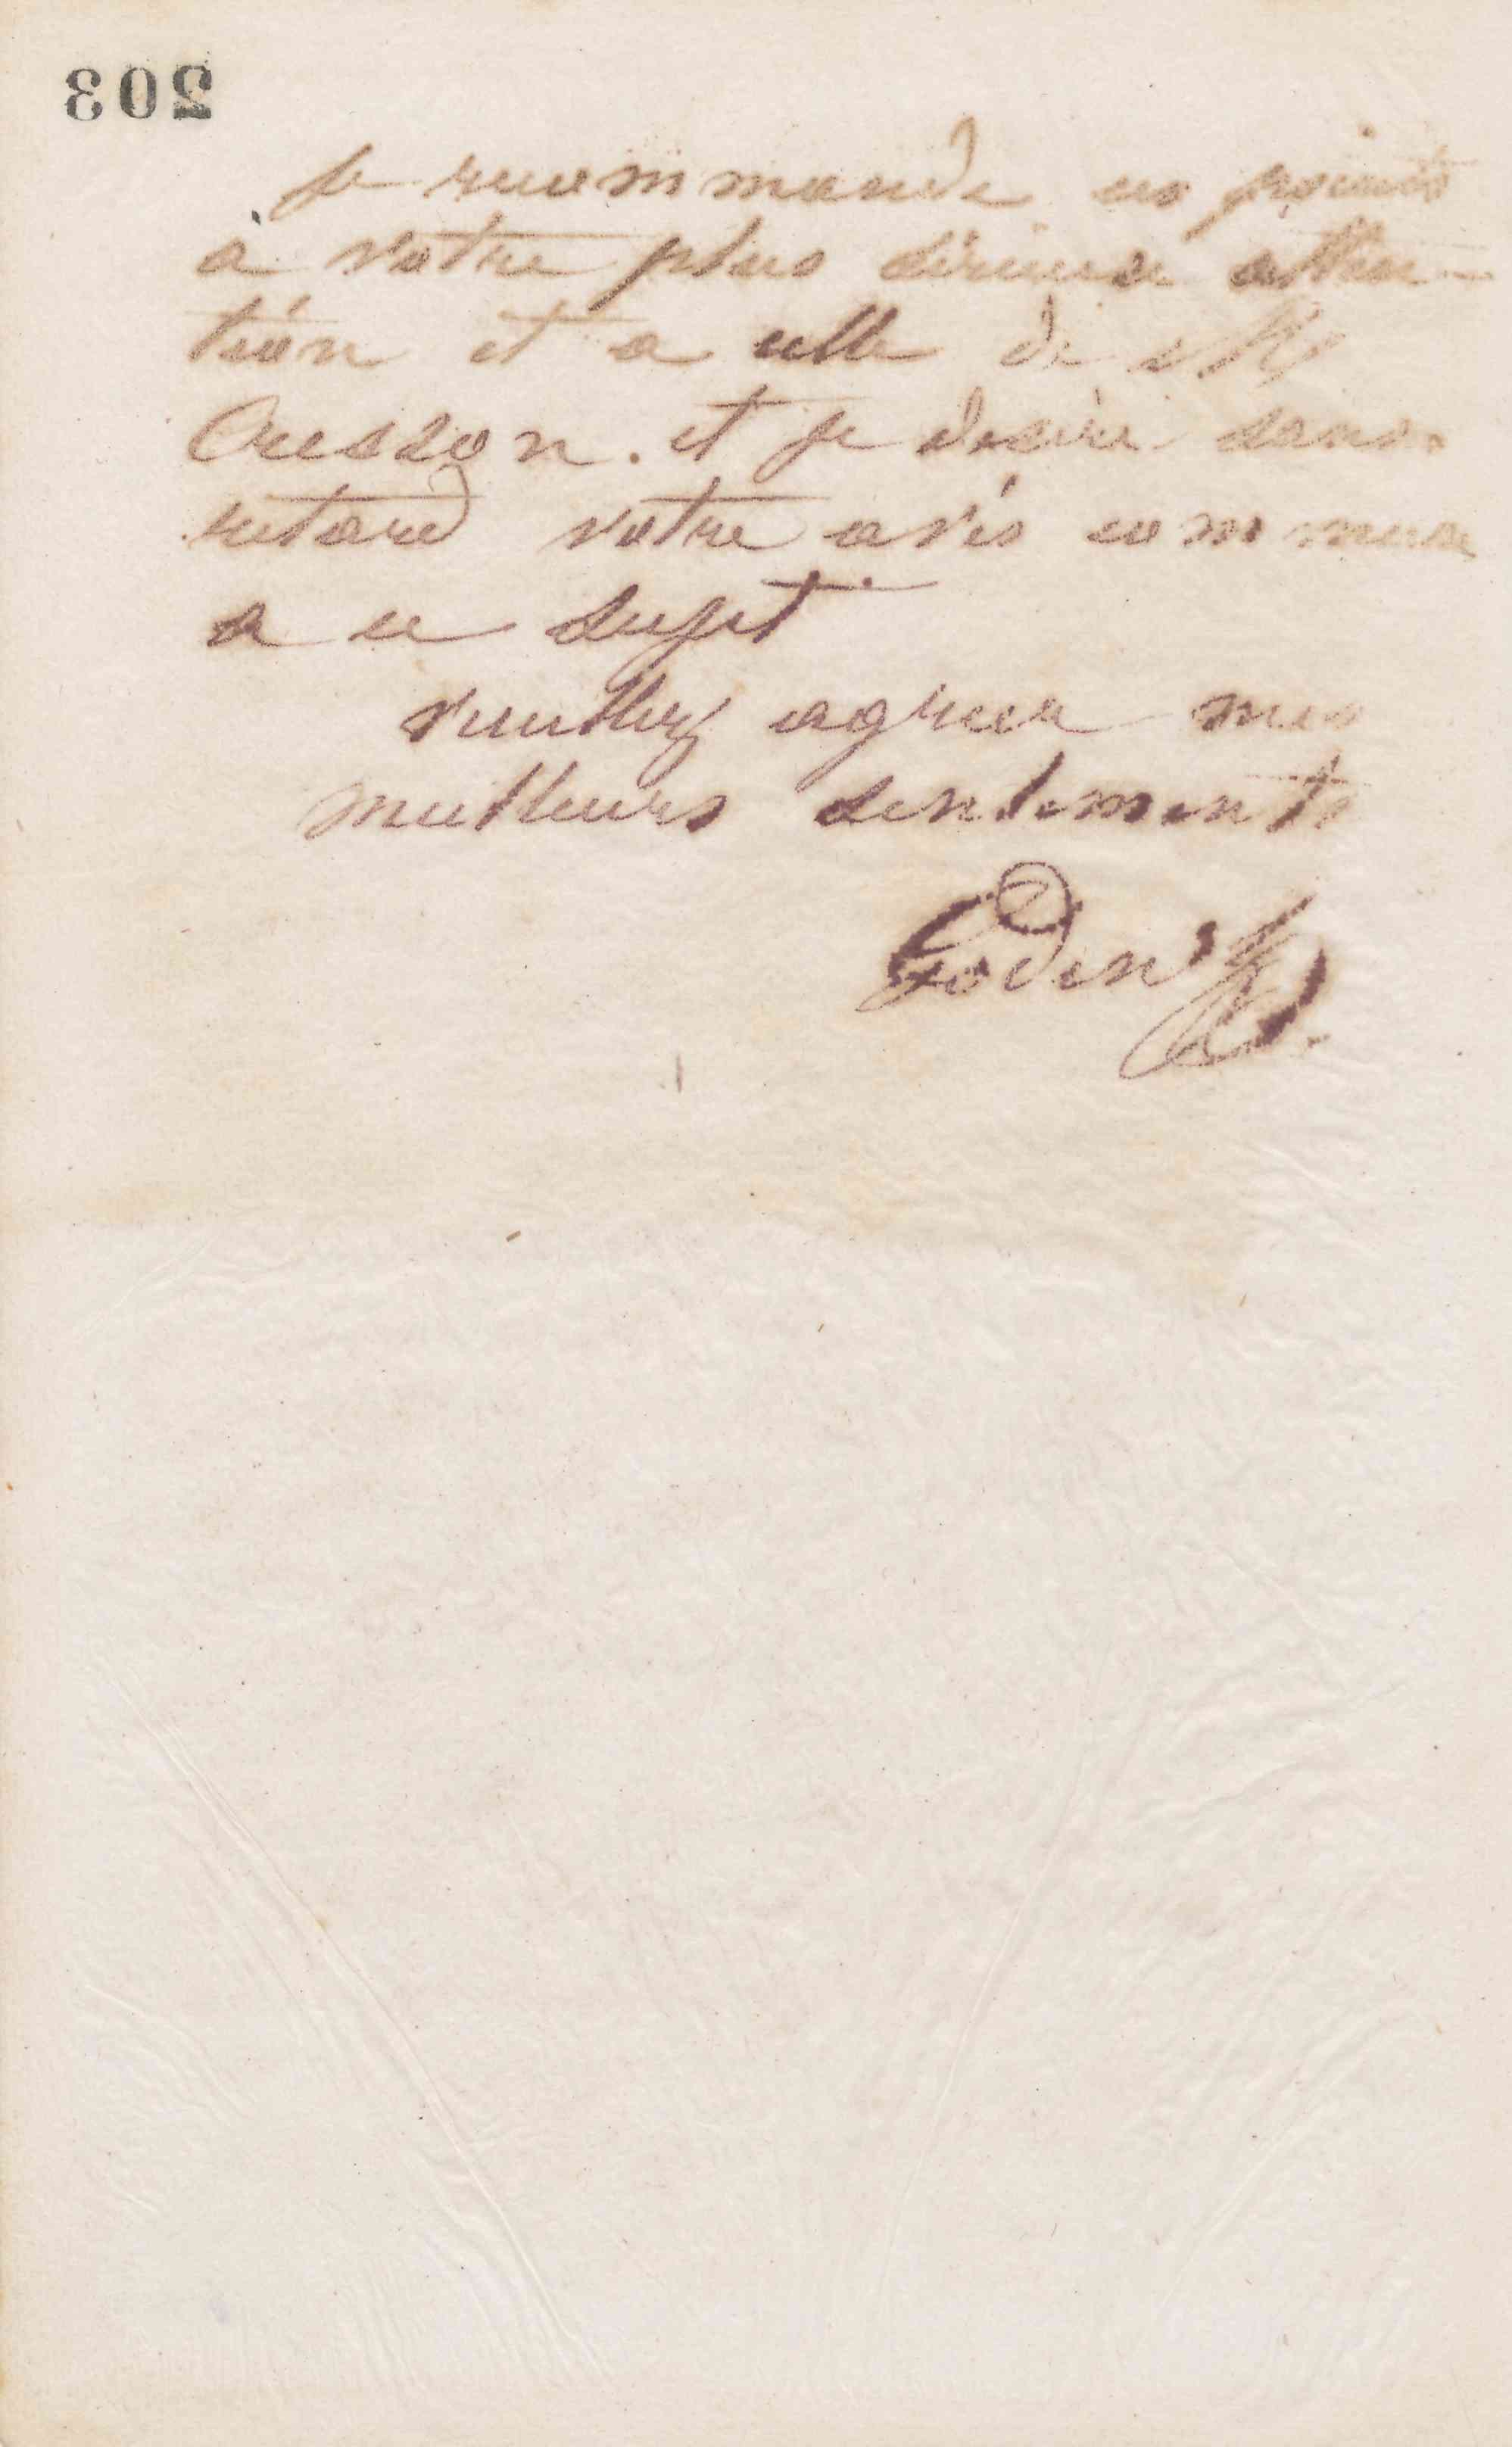 203
je recommande ces points
a votre plus sérieuse atten-
tión et a celle de Mr
Cresson. et je desire sans
retard votre avis commun
a ce sujet
veuillez agreer mes
meilleurs sentiments
Godin